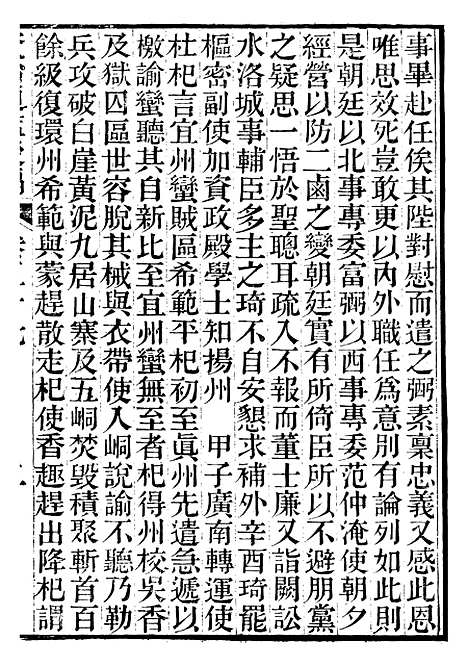 事畢赴任俟其陛對慰而遣之弼素稟忠義又感此恩
唯思效死豈敢更以內外職任為意別有論列如此則
是朝廷以北事專委富弼以西事專委范仲淹使朝夕
經營以防二鹵之變朝廷實有所倚臣所以不避朋黨
之疑思一悟於聖聰耳疏入不報而董士廉又詣闕訟
水洛城事輔臣多主之琦不自安懇求補外辛酉琦罷
樞密副使加資政殿學士知揚州 甲子廣南轉運使
杜杞言宜州蠻賊區希範平杞初至眞州先遣急遞以
檄諭蠻聽其自新比至宜州蠻無至者杞得州校吳香
及獄囚區世容脫其械與衣帶使入峒說諭不聽乃勒
兵攻破白崖黃泥九居山寨及五峒焚毀積聚斬首百
餘級復環州希範與蒙趕散走杞使香趣趕出降杞謂